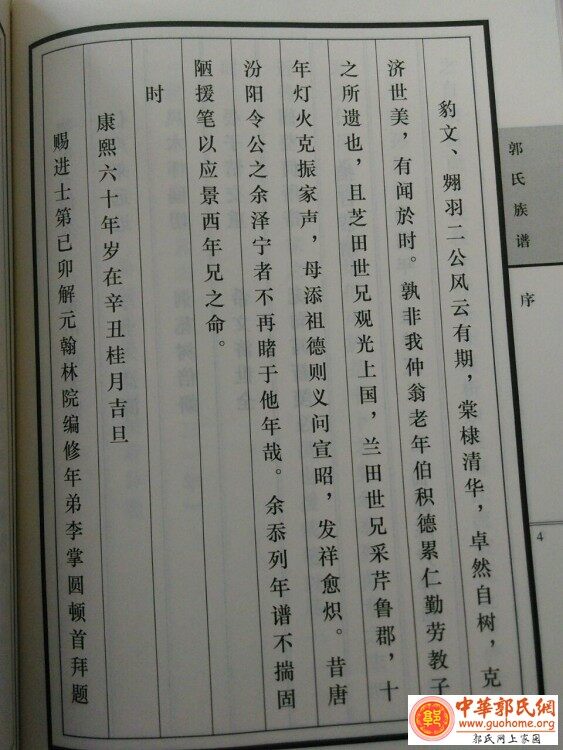 郭氏族谱
序
4
豹文、翙羽二公风云有期，棠棣清华，卓然自树，克
济世美，有闻於时。孰非我仲翁老年伯积德累仁勤劳教子
之所遗也，且芝田世兄观光上国，兰田世兄采芹鲁郡，十
年灯火克振家声，母添祖德则义问宣昭，发祥愈炽。昔唐
汾阳令公之余泽宁者不再睹于他年哉。余忝列年谱不揣固
陋援笔以应景西年兄之命。
时
康熙六十年岁在辛丑桂月吉旦
赐进士第己卯解元翰林院编修年弟李掌圆顿首拜题
中華郭氏網
www.guohome.org
郭氏网上家园